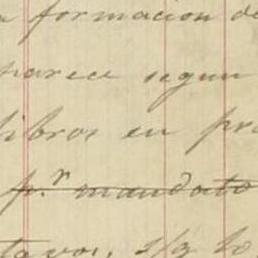 formacion de
parece segun
libros en pro
p.r mandato
tavos, 1/2 lo